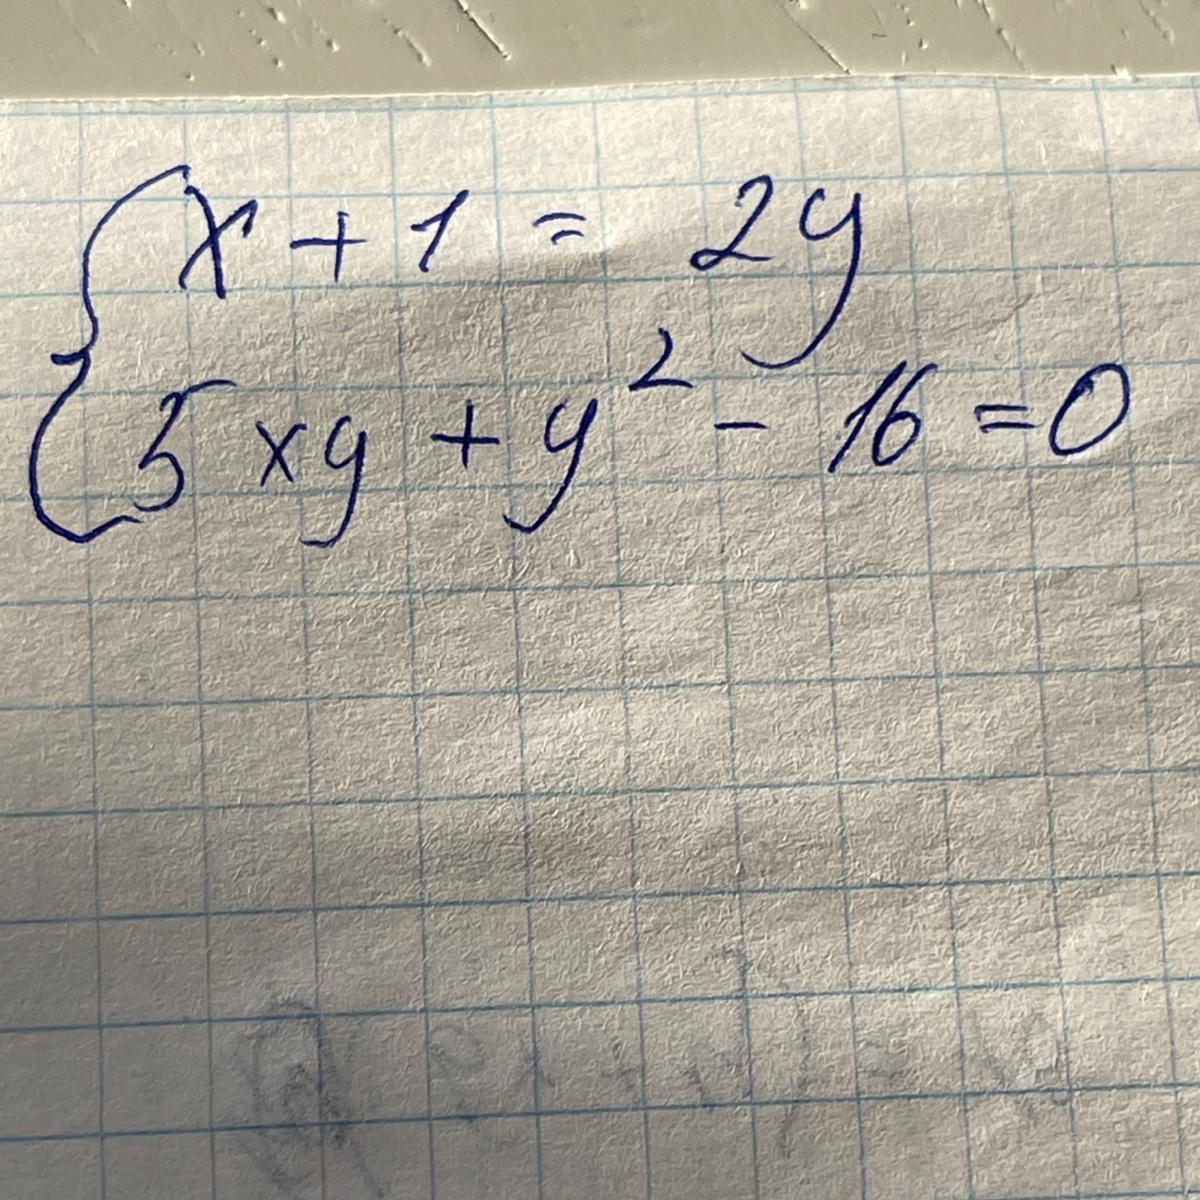 x + 1 = 2y
5xy + y² - 16 = 0